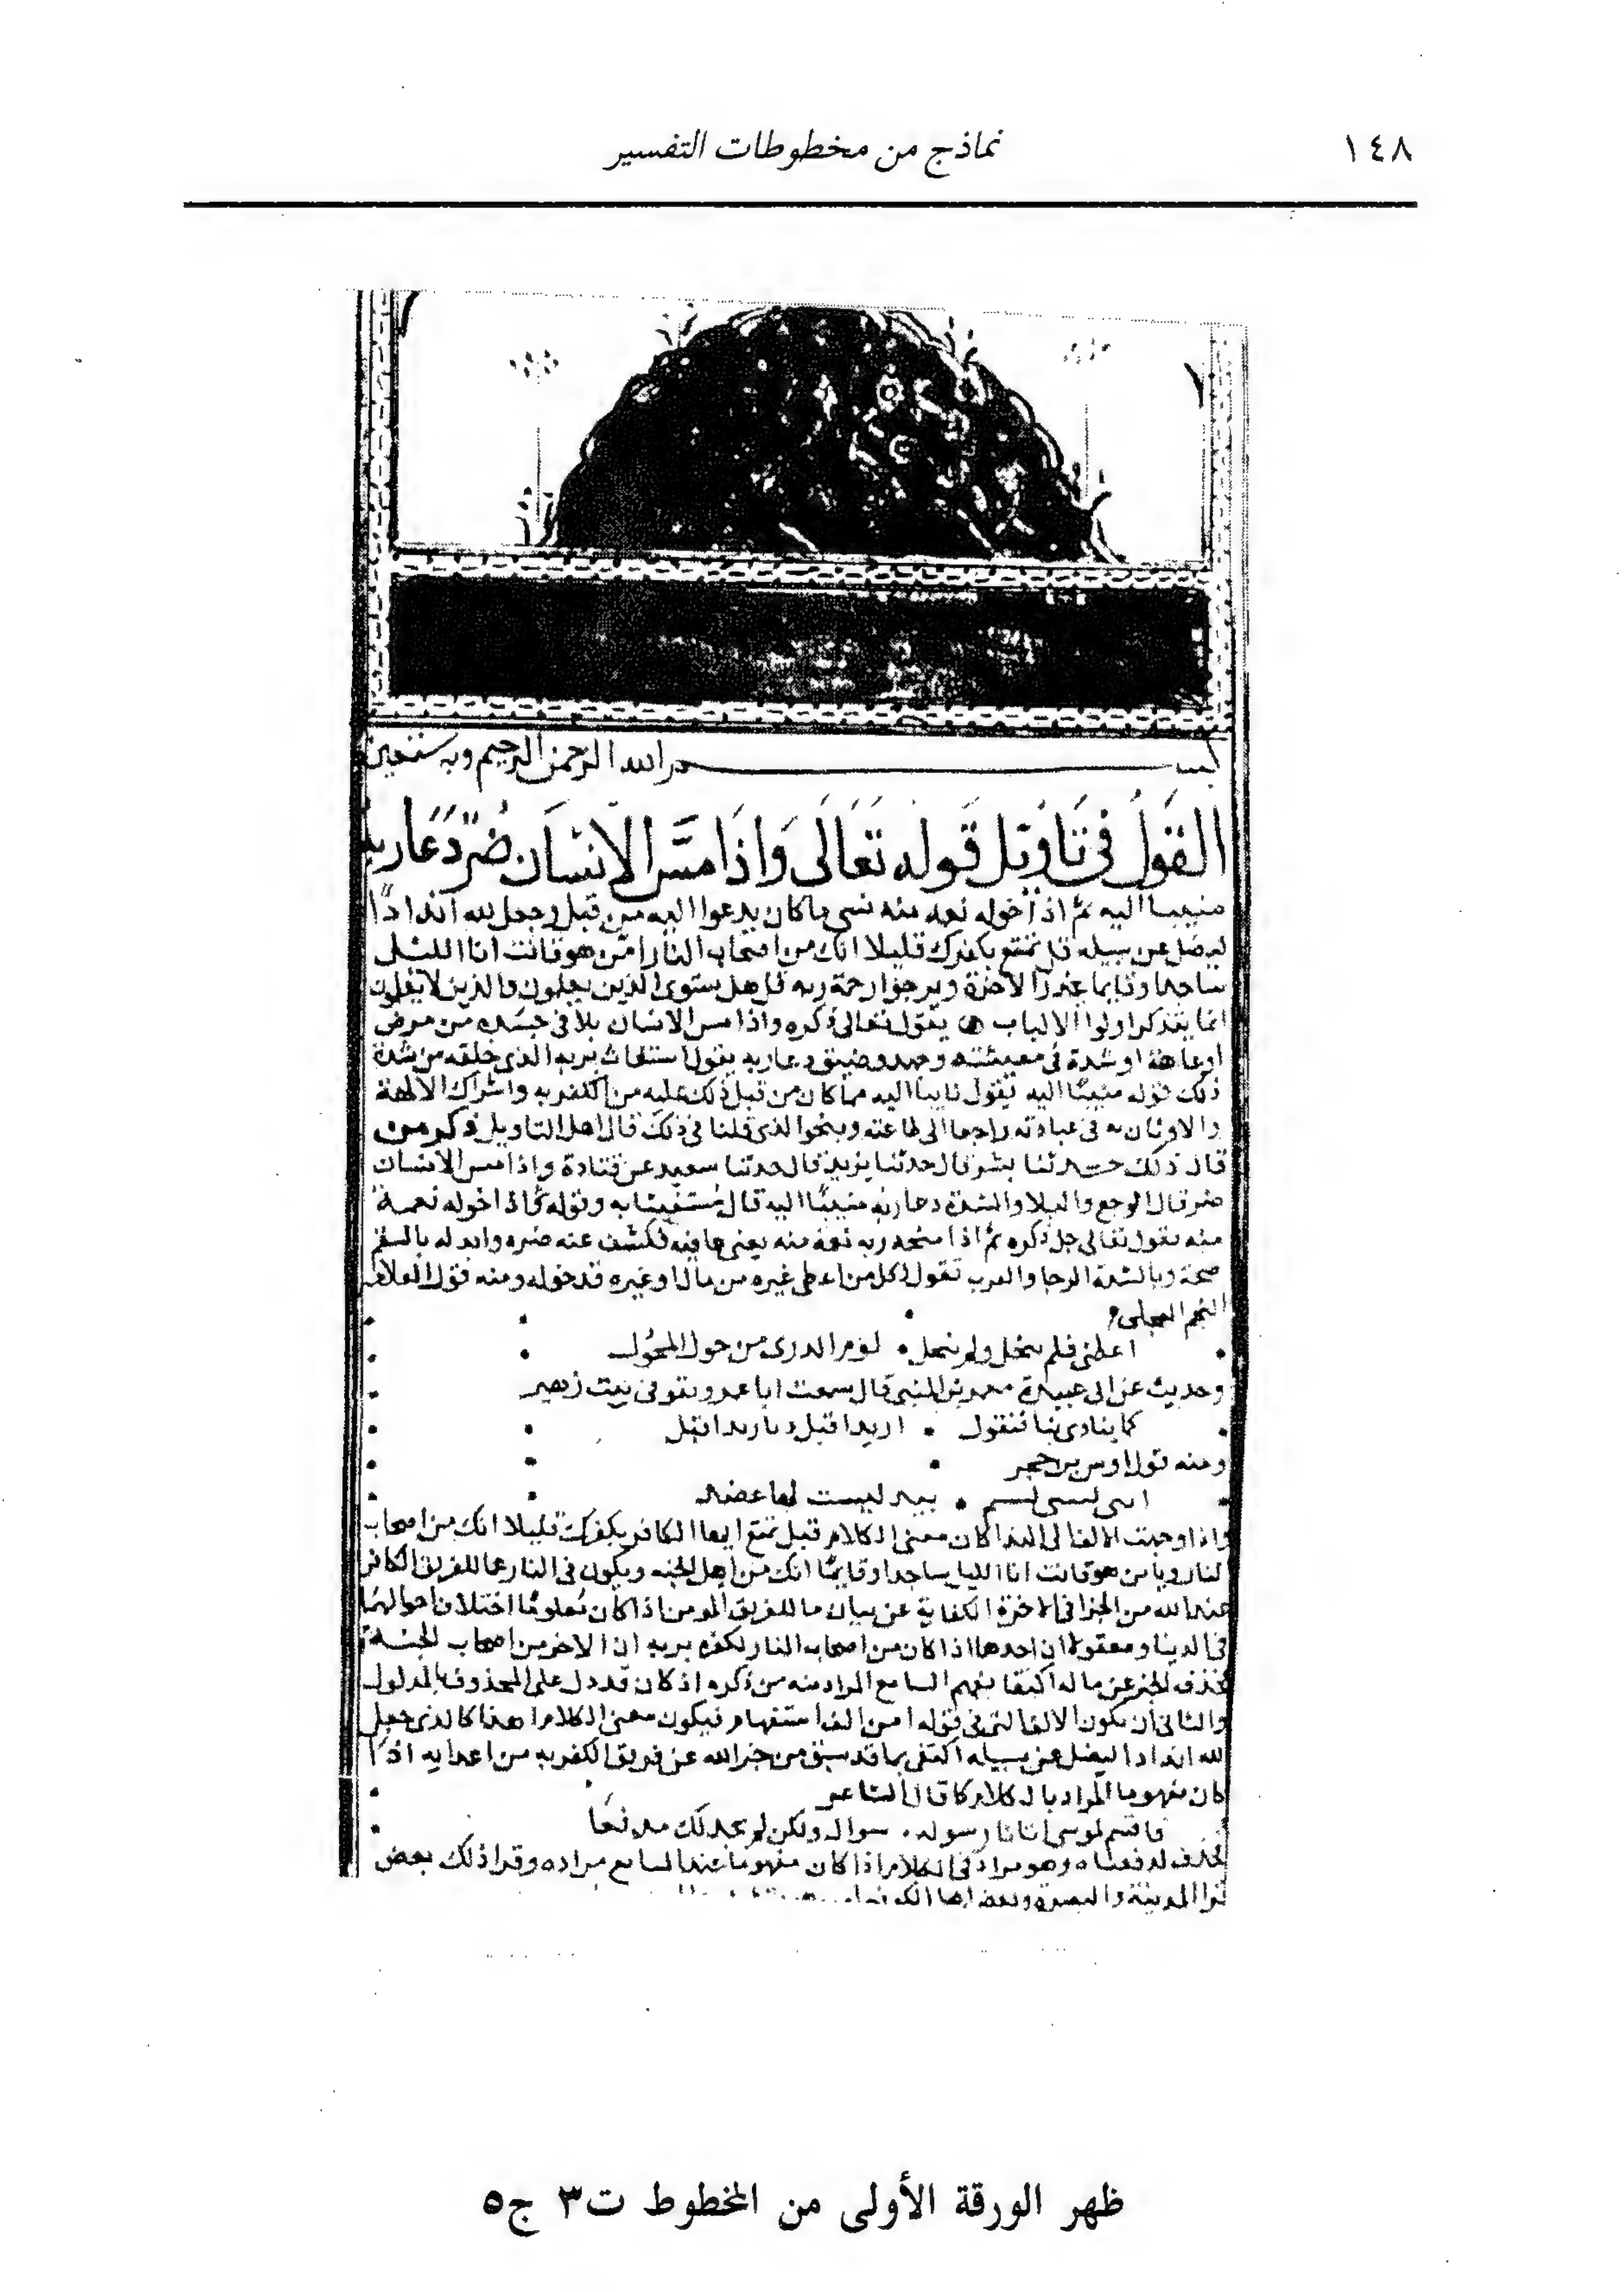 ١٤٨
نماذج من مخطوطات التفسير
بسم الله الرحمن الرحيم وبه نستعين
القَولُ في تَاوِيْل قَوله تَعَالَى وَاِذَا مسَّ الانسَان ضُرٌّ دَعَا ربه
منيبا اليه ثم اذا خوله نعمة منه نسي ما كان يدعوا اليه من قبل وجعل لله اندادًا
ليضل عن سبيله قل تمتع بكفرك قليلا انك من اصحاب النار امّن هو قانت اناا الليل
ساجدا وقايما يحذر الاخرة ويرجوا رحمة ربه قل هل يستوي الذين يعلمون والذين لا يعلمون
انما يتذكر اولوا الالباب يقول تعالى ذكره واذا مس الانسان بلا في جسده من مرض
او عاهة او شدة في معيشته وجهد وضيق دعا ربه يقول استغاث بربه الذي خلقه من شدة
ذلك قوله منيبًا اليه يقول تايبا اليه مما كان من قبل ذلك عليه من الكفر به واشراك الالهة
والاوثان به في عبادته راجعا الى طاعته وبنحوا الذي قلنا في ذلك قال اهل التاويل ذكر من
قال ذلك حدثنا بشر قال حدثنا يزيد قال حدثنا سعيد عن قتادة واذا مس الانسان
ضر قال الوجع والبلا والشدة دعا ربه منيبًا اليه قال مُستغيثا به وقوله ثم اذا خوله نعمة
منه يقول تعالى جل ذكره ثم اذا منحه ربه نعمة منه يعني عافية فكشف عنه ضره وابدله بالسقم
صحة وبالشدة الرخا والعرب تقول لكل من اعطى غيره من مال او غيره قد خوله ومنه قول
النجم العجلي
اعطى فلم يبخل ولم يبخل لوم الذرى من خول المخول
وحديث عن ابي عبيدة معمر بن المثنى قال سمعت ابا عمرو يقول في بيت زهير
ومنه قول اوس بن حجر
بيد ليست لها عضد
واذا وجهت الالف الى الندا كان معنى الكلام قل تمتع ايها الكافر بكفرك قليلا انك من اصحاب
النار ويا من هو قانت اناا الليل ساجدا وقايمًا انك من اهل الجنه ويكون في النار عما للفريق الكافر
عند الله من الجزا في الاخرة الكفاية عن بيان ما للفريق المومن اذا كان معلومًا اختلاف احوالهما
في الدنيا ومعقولا ان احدهما اذا كان من اصحاب النار لكفره بربه ان الاخر من اصحاب الجنة
فحذف الخبر عن ما له اكتفا بفهم السامع المراد منه من ذكره اذ كان قد دل على المحذوف بالمدلول
والثاني ان يكون الالف التي في قوله امن الف استفهام فيكون معنى الكلام اهذا كالذي جعل
لله اندادا ليضل عن سبيله اكتفى بما قد سبق من خبر الله عن فريق الكفر به من اعدايه اذا
كان مفهوما المراد بالكلام كما قال الشاعر
فاقسم لو شي اتانا رسوله سواك ولكن لم نجد لك مدفعَا
فحذف لدفعناه وهو مراد في الكلام اذا كان مفهوما عند السامع مراده وقرا ذلك بعض
قرا المدينة والبصرة وبعض اهل الكوفة
ظهر الورقة الأولى من المخطوط ت٣ ج٥